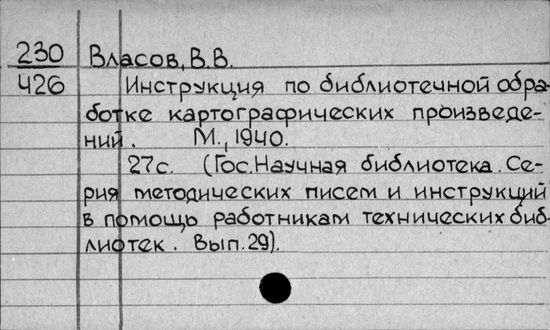 230 Власов, В.В.
426 Инструкция по библиотечной обра-
ботке картографических произведе-
ний. М., 1940.
27с. (Гос. Научная библиотека. Се-
рия методических писем и инструкций
в помощь работникам технических биб-
лиотек. Вып. 29).